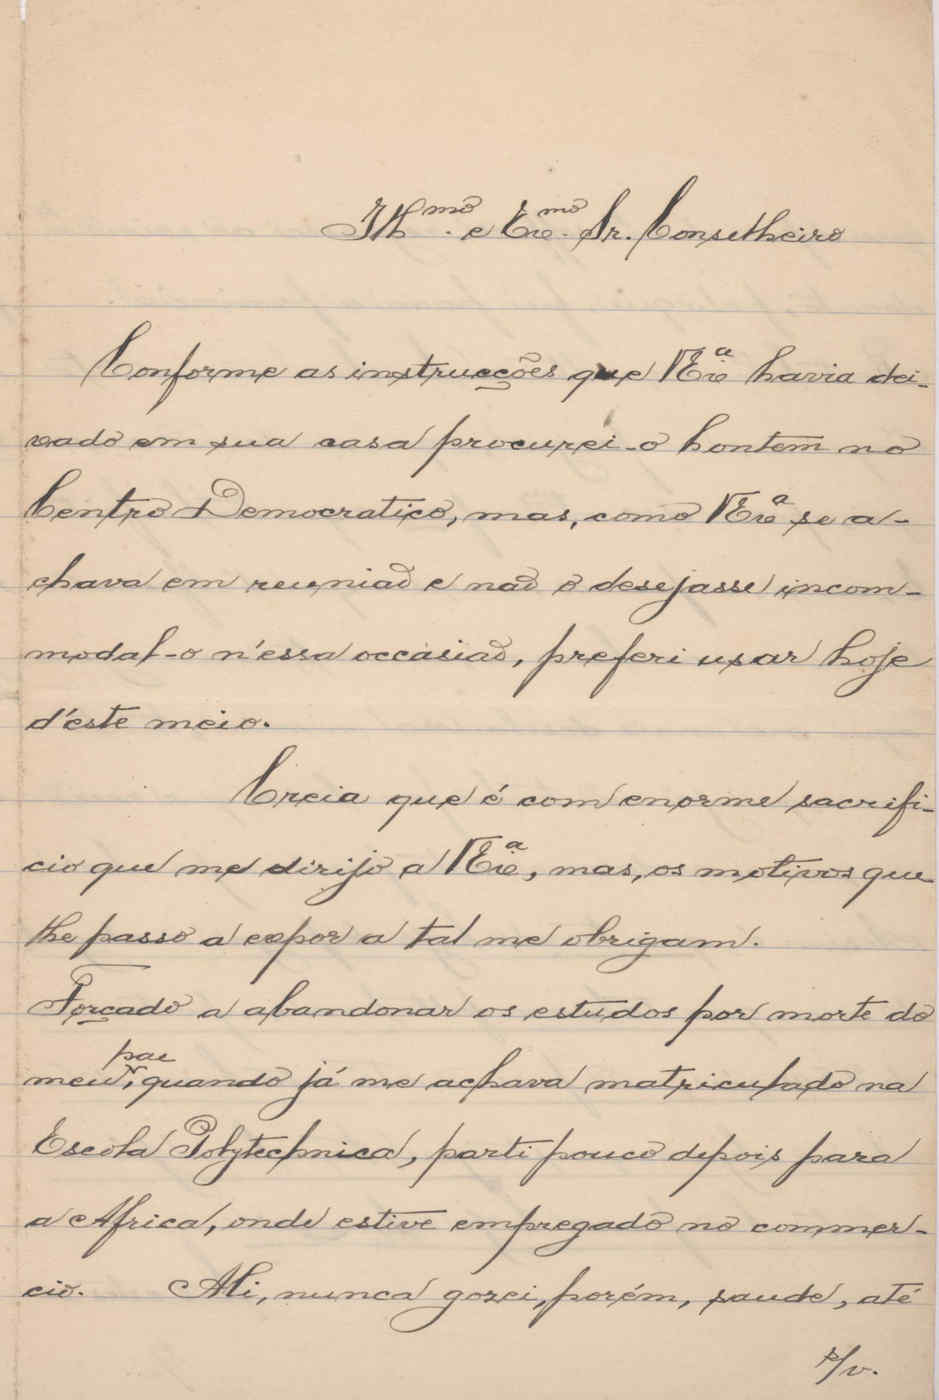 Ill.mo e Ex.mo Sr. Conselheiro
Conforme as instrucções que V Ex.a havia dei-
xado em sua casa procurei-o hontem no
Centro Democratico, mas, como V Ex.a se a-
chava em reunião e não o desejasse incom-
modal-o n'essa occasião, preferi usar hoje
d'este meio.
Creia que é com enorme sacrifi-
cio que me dirijo a V Ex.a, mas, os motivos que
lhe passo a expor a tal me obrigam.
Forçado a abandonar os estudos por morte do
meu pae, quando já me achava matriculado na
Escola Polytechnica, parti pouco depois para
a Africa, onde estive empregado no commer-
cio. Ali, nunca gozei, porém, saude, até
s/v.